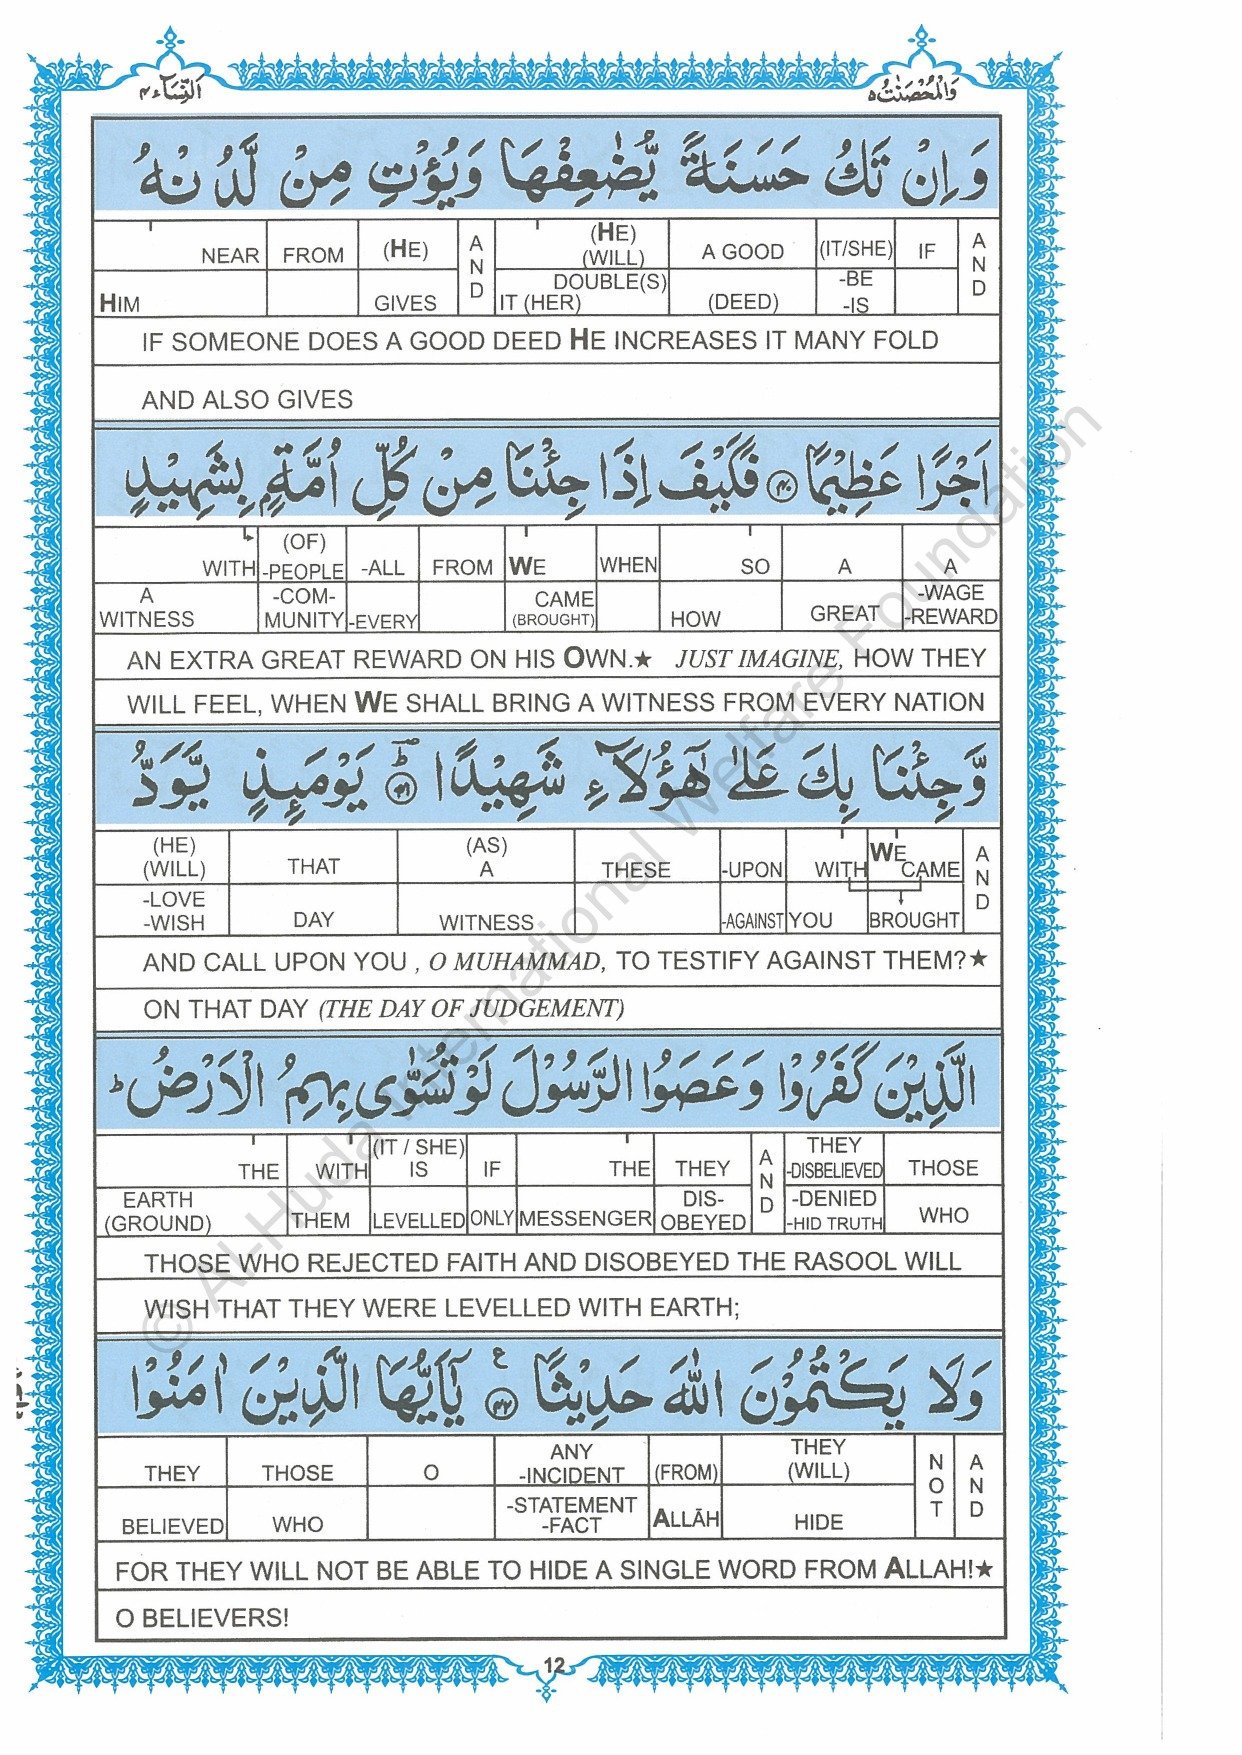 اَلنِّسَآء٤ وَالْمُحْصَنٰتُ٥
وَ اِنْ تَكُ حَسَنَةً يُّضٰعِفْهَا وَيُؤْتِ مِنْ لَّدُنْهُ
NEAR FROM (HE) AND (HE) (WILL) A GOOD (IT/SHE) IF AND
HIM GIVES DOUBLE(S) IT (HER) (DEED) -BE -IS
IF SOMEONE DOES A GOOD DEED HE INCREASES IT MANY FOLD
AND ALSO GIVES
اَجْرًا عَظِيْمًا ﴿٤٠﴾ فَكَيْفَ اِذَا جِئْنَا مِنْ كُلِّ اُمَّةٍۭ بِشَهِيْدٍ
WITH (OF) -PEOPLE -ALL FROM WE WHEN SO A A
A WITNESS -COM-MUNITY -EVERY CAME (BROUGHT) HOW GREAT -WAGE -REWARD
AN EXTRA GREAT REWARD ON HIS OWN.★ JUST IMAGINE, HOW THEY
WILL FEEL, WHEN WE SHALL BRING A WITNESS FROM EVERY NATION
وَّجِئْنَا بِكَ عَلٰى هٰٓؤُلَآءِ شَهِيْدًا ﴿٤١﴾ؕ يَوْمَئِذٍ يَّوَدُّ
(HE) (WILL) THAT (AS) A THESE -UPON WITH WE CAME AND
-LOVE -WISH DAY WITNESS -AGAINST YOU BROUGHT
AND CALL UPON YOU , O MUHAMMAD, TO TESTIFY AGAINST THEM?★
ON THAT DAY (THE DAY OF JUDGEMENT)
الَّذِيْنَ كَفَرُوْا وَعَصَوُا الرَّسُوْلَ لَوْ تُسَوّٰى بِهِمُ الْاَرْضُ ؕ
THE WITH (IT / SHE) IS IF THE THEY AND THEY -DISBELIEVED THOSE
EARTH (GROUND) THEM LEVELLED ONLY MESSENGER DIS-OBEYED -DENIED -HID TRUTH WHO
THOSE WHO REJECTED FAITH AND DISOBEYED THE RASOOL WILL
WISH THAT THEY WERE LEVELLED WITH EARTH;
وَلَا يَكْتُمُوْنَ اللّٰهَ حَدِيْثًا ﴿٤٢﴾ ع يٰٓاَيُّهَا الَّذِيْنَ اٰمَنُوْا
THEY THOSE O ANY -INCIDENT (FROM) THEY (WILL) NOT AND
BELIEVED WHO -STATEMENT -FACT ALLĀH HIDE
FOR THEY WILL NOT BE ABLE TO HIDE A SINGLE WORD FROM ALLAH!★
O BELIEVERS!
12
© Al-Huda International Welfare Foundation